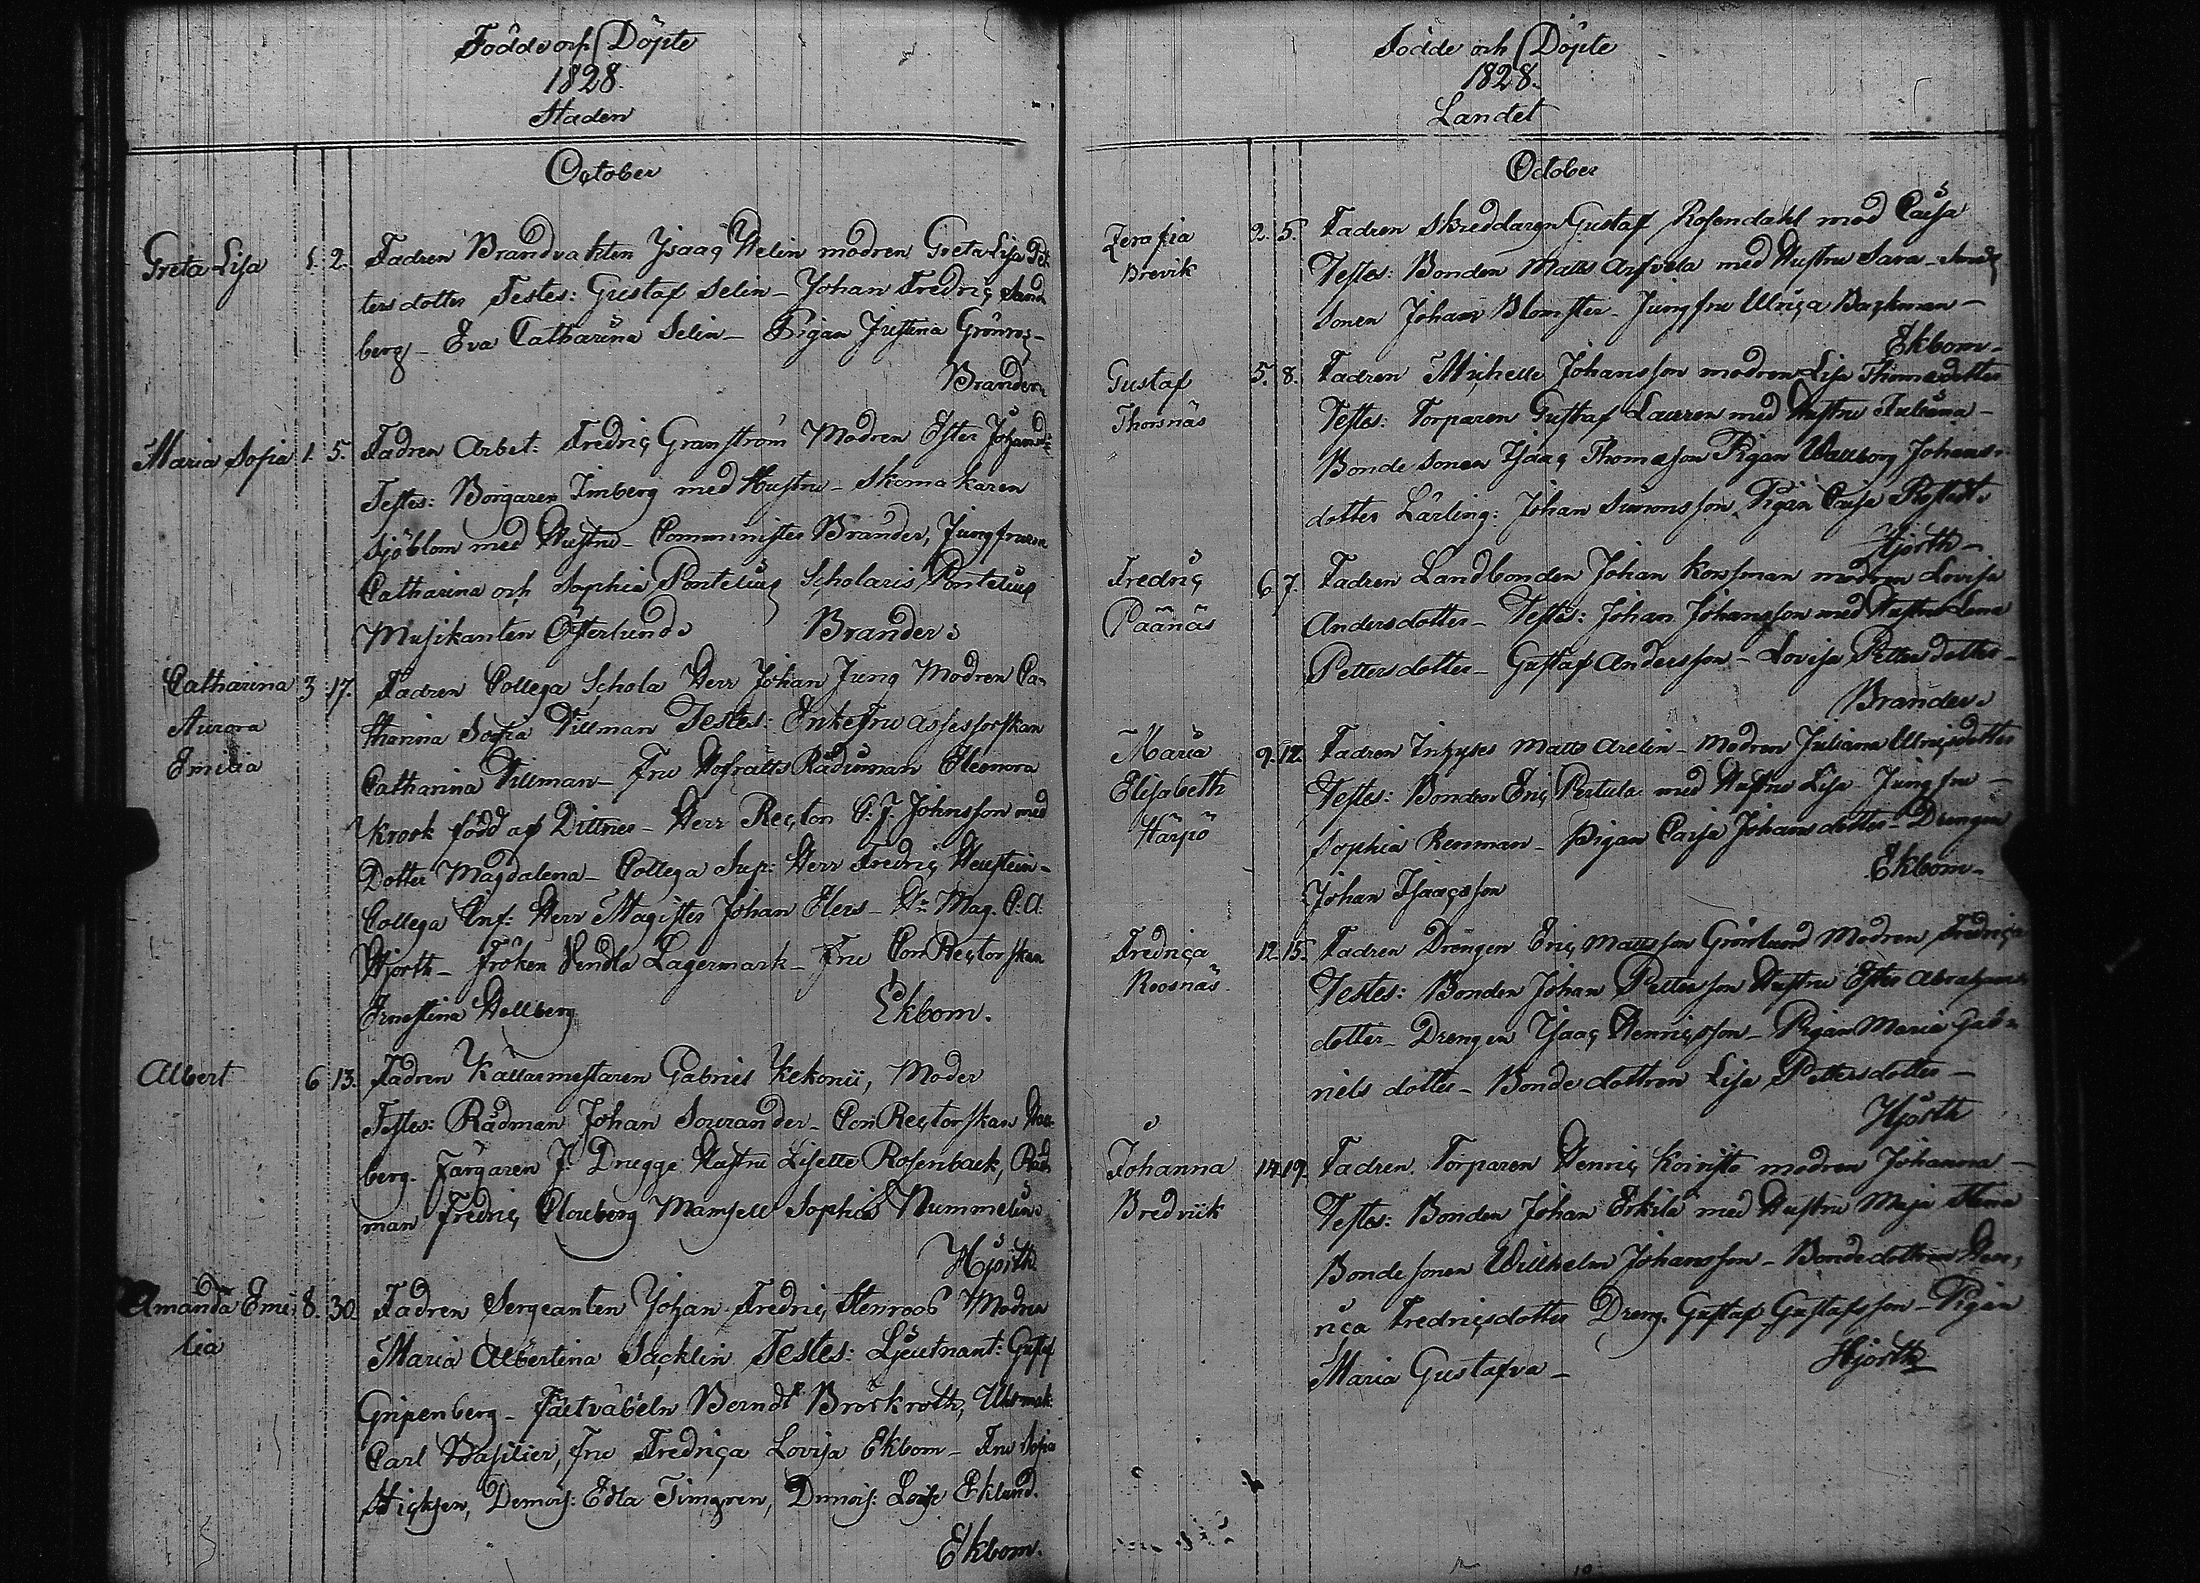 Födde och Döpte
1828.
Staden
October
Greta Lisa 1. 2. Fadren Brandvakten Ysaac Welin modren Greta Lisa Pet
tersdotter Testes: Gustaf Selin – Johan Fredric Sand
berg – Eva Catharina Selin – Pigan Justina Grönroos –
Brander
Maria Sofia 1. 5. Fadren Arbet: Fredric Granström Modren Ester Johansd:
Testes: Borgaren Imberg med Hustru – Skomakaren
Sjöblom med Hustru – Comminister Brander, Jungfrurna
Catharina och Sophia Pontelius Scholaris Pontelius
Musikanten Österlund. Brander.
Catharina 3 17. Fadren Collega Schola Herr Johan Jung Modren Ca-
Aurora
tharina Sofia Tillman Testes: Enkefru Assessorskan
Emilia
Catharina Tillman – Fru Hofrätts Rådinnan Eleonora
Krook född af Dittmer – Herr Rector C. J. Johnsson med
Dotter Magdalena – Collega Sup: Herr Fredric Wenstein –
Collega Inf: Herr Magister Johan Elers – Hr Mag. C. A.
Hjorth – Fröken Vendla Lagermark – Fru ConRectorskan
Ernestina Hellberg Ekbom.
Albert 6 13. Fadren Källarmestaren Gabriel Kekonii, Moder
Testes: Rådman Johan Sourander – ConRectorskan
berg. Färgaren J. Drugge Hustru Lisette Rosenback, Råd
man Fredric Clouberg Mamsell Sophia Nummelin.
Hjorth
Amanda Eme 8. 30. Fadren Sergeanten Johan Fredric Stenroos Modren
lia
Maria Albertina Sacklin Testes: Ljeutnant: Gustaf
Gripenberg – Fältväbeln Berndt Brockroth, Uhrmak:
Carl Basilier, Fru Fredrica Lovisa Ekbom – Fru Sofia
Hicksen, Demois: Edla Timgren, Demois: Lovise Eklund.
Ekbom.
Födde och Döpte
1828.
Landet
October
Zerafia 2. 5. Fadren Skreddaren Gustaf Rosendahl mod Caisa
Brevik
Testes: Bonden Matts Arfvela med Hustru Sara –
Sonen Johan Blomster – Jungfru Ulrica Backman –
Ekbom –
Gustaf 5. 8. Fadren Michell Johansson modren Lisa Thomasdotter
Thorsnäs
Testes: Torparen Gustaf Lauren med Hustru Juliana –
Bonde Sonen Isaac Thomasson Pigan Walborg Johans-
dotter Lärling: Johan Simonsson Pigan Caisa
Hjorth –
Fredric 6 7. Fadren Landbonden Johan Korsman modren Lovisa
Päänäs
Andersdotter – Testes: Johan Johansson med Hustru Lena
Pettersdotter – Gustaf Andersson – Lovisa Pettersdotter –
Brander.
Maria 9. 12. Fadren Inhyses Matts Arelin – Modren Juliana Ulricsdotter
Elisabeth
Testes: Bonden Eric Pertula med Hustru Lisa Jungfru –
Harpö
Sophia Renman – Pigan Caisa Johansdotter – Drengen
Johan Isaacsson Ekbom –
Fredrica 12. 15. Fadren Drengen Eric Mattsson Grönlund Modren Fredrica
Roosnäs
Testes: Bonden Johan Pettersson Hustru Ester Abrahams
dotter – Drengen Ysaac Henricsson – Pigan Maria Gab-
riels dotter – Bonde dottren Lisa Pettersdotter –
Hjorth
Johanna 14. 19. Fadren Torparen Henric Koivisto modren Johanna –
Bredviik
Testes: Bonden Johan Erkila med Hustru Maja Stena
Bonde sonen Willhelm Johansson – Bondedottren Hen-
rica Fredricsdotter Dreng. Gustaf Gustafsson – Pigan
Maria Gustafva – Hjorth